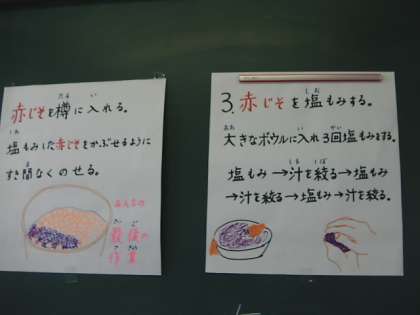 赤じそを樽に入れる。
塩もみした赤じそをかぶせるように
すき間なくのせる。
みんなの
最後の
作業
3. 赤じそを塩もみする。
大きなボウルに入れ3回塩もみする。
塩もみ→汁を絞る→塩もみ
→汁を絞る→塩もみ→汁を絞る。